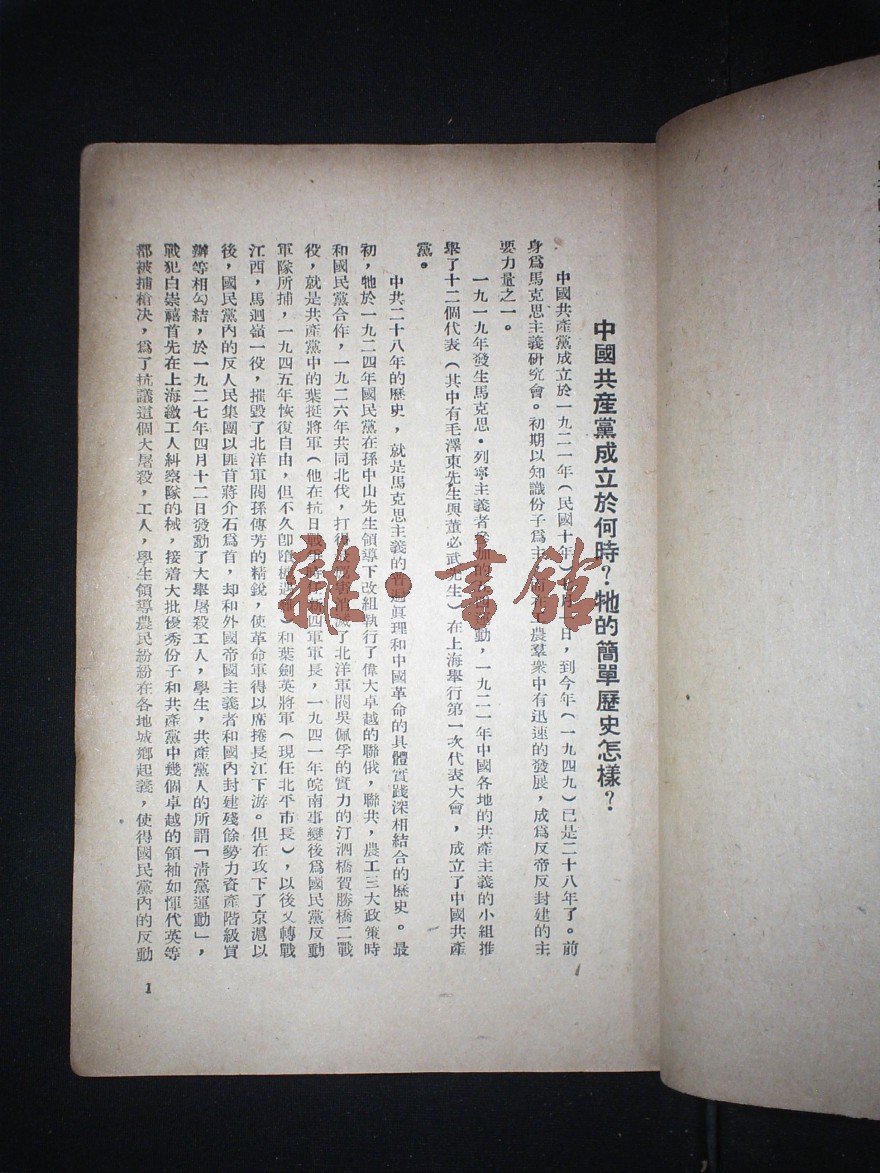 中國共產黨成立於何時?牠的簡單歷史怎樣?
中國共產黨成立於一九二一年(民國十年)月一日,到今年(一九四九)已是二十八年了。前
身爲馬克思主義研究會。初期以知識份子爲主農羣衆中有迅速的發展,成爲反帝反封建的主
要力量之一。
一九一九年發生馬克思·列寧主義者參加的運動,一九二一年中國各地的共產主義的小組推
舉了十二個代表(其中有毛澤東先生與董必武先生)在上海舉行第一次代表大會,成立了中國共產
黨。
中共二十八年的歷史,就是馬克思主義的眞理和中國革命的具體實踐深相結合的歷史。最
初,牠於一九二四年國民黨在孫中山先生領導下改組執行了偉大卓越的聯俄,聯共,農工三大政策時
和國民黨合作,一九二六年共同北伐,打消滅了北洋軍閥吳佩孚的實力的汀泗橋賀勝橋二戰
役,就是共產黨中的葉挺將軍(他在抗日戰四軍軍長,一九四一年皖南事變後爲國民黨反動
軍隊所捕,一九四五年恢復自由,但不久卽)和葉劍英將軍(現任北平市長),以後又轉戰
江西,馬迴嶺一役,摧毀了北洋軍閥孫傳芳的精銳,使革命軍得以席捲長江下游。但在攻下了京滬以
後,國民黨內的反人民集團以匪首蔣介石爲首,却和外國帝國主義者和國內封建殘餘勢力資產階級買
辦等相勾結,於一九二七年四月十二日發動了大舉屠殺工人,學生,共產黨人的所謂「淸黨運動」,
戰犯白崇禧首先在上海繳工人糾察隊的械,接着大批優秀份子和共產黨中幾個卓越的領袖如惲代英等
都被捕槍决,爲了抗議這個大屠殺,工人,學生領導農民紛紛在各地城鄉起義,使得國民黨內的反動
1
雜·書館